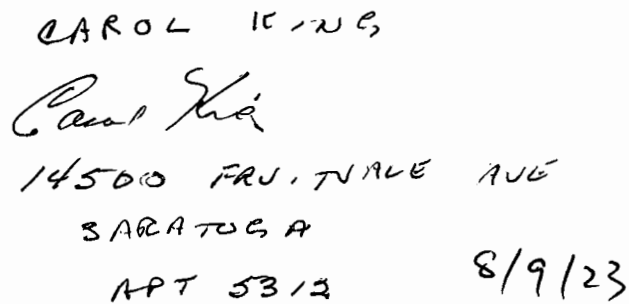 CAROL KING
Carol King
14500 FRUITVALE AVE
SARATOGA
APT 5312
8/9/23